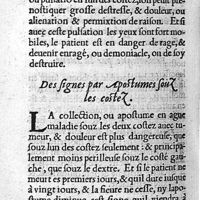 nostiquer grosse destresse, & douleur, ou
alienation & permixtion de raison. Et si
auec ceste pulsation les yeux sont fort mo-
biles, le patient est en danger de rage, &
deuenir enragé, ou demoniacle, ou de soy
destruire.
Des signes par Apostumes souz
les costez.
LA collection, ou apostume en ague
maladie, souz les deux costez auec tu-
meur, & douleur est plus dangereuse, que
souz lun des costez seulement : & principa-
lement moins perilleuse souz le costé gau-
che, que souz le dextre. Et si le patient ne
meurt es premiers iours, & quil dure iusques
à vingt iours, & la fieure ne cesse, ny lapo-